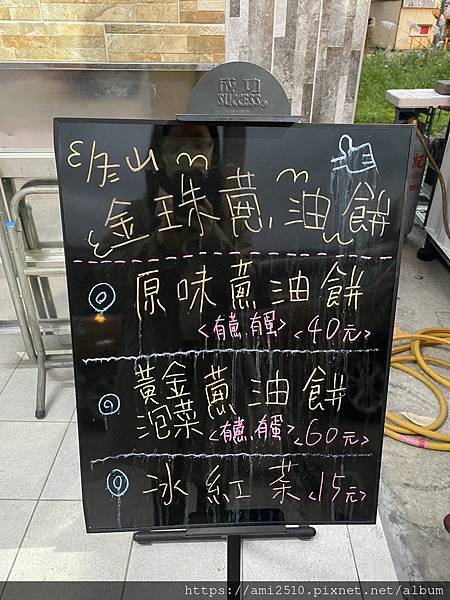 成功
SUCCESS®
冬山
金珠蔥油餅
原味蔥油餅
<有蔥.有蛋> <40元>
黃金泡菜蔥油餅
<有蔥.有蛋> <60元>
冰紅茶 <15元>
https://ami2510.pixnet.net/album